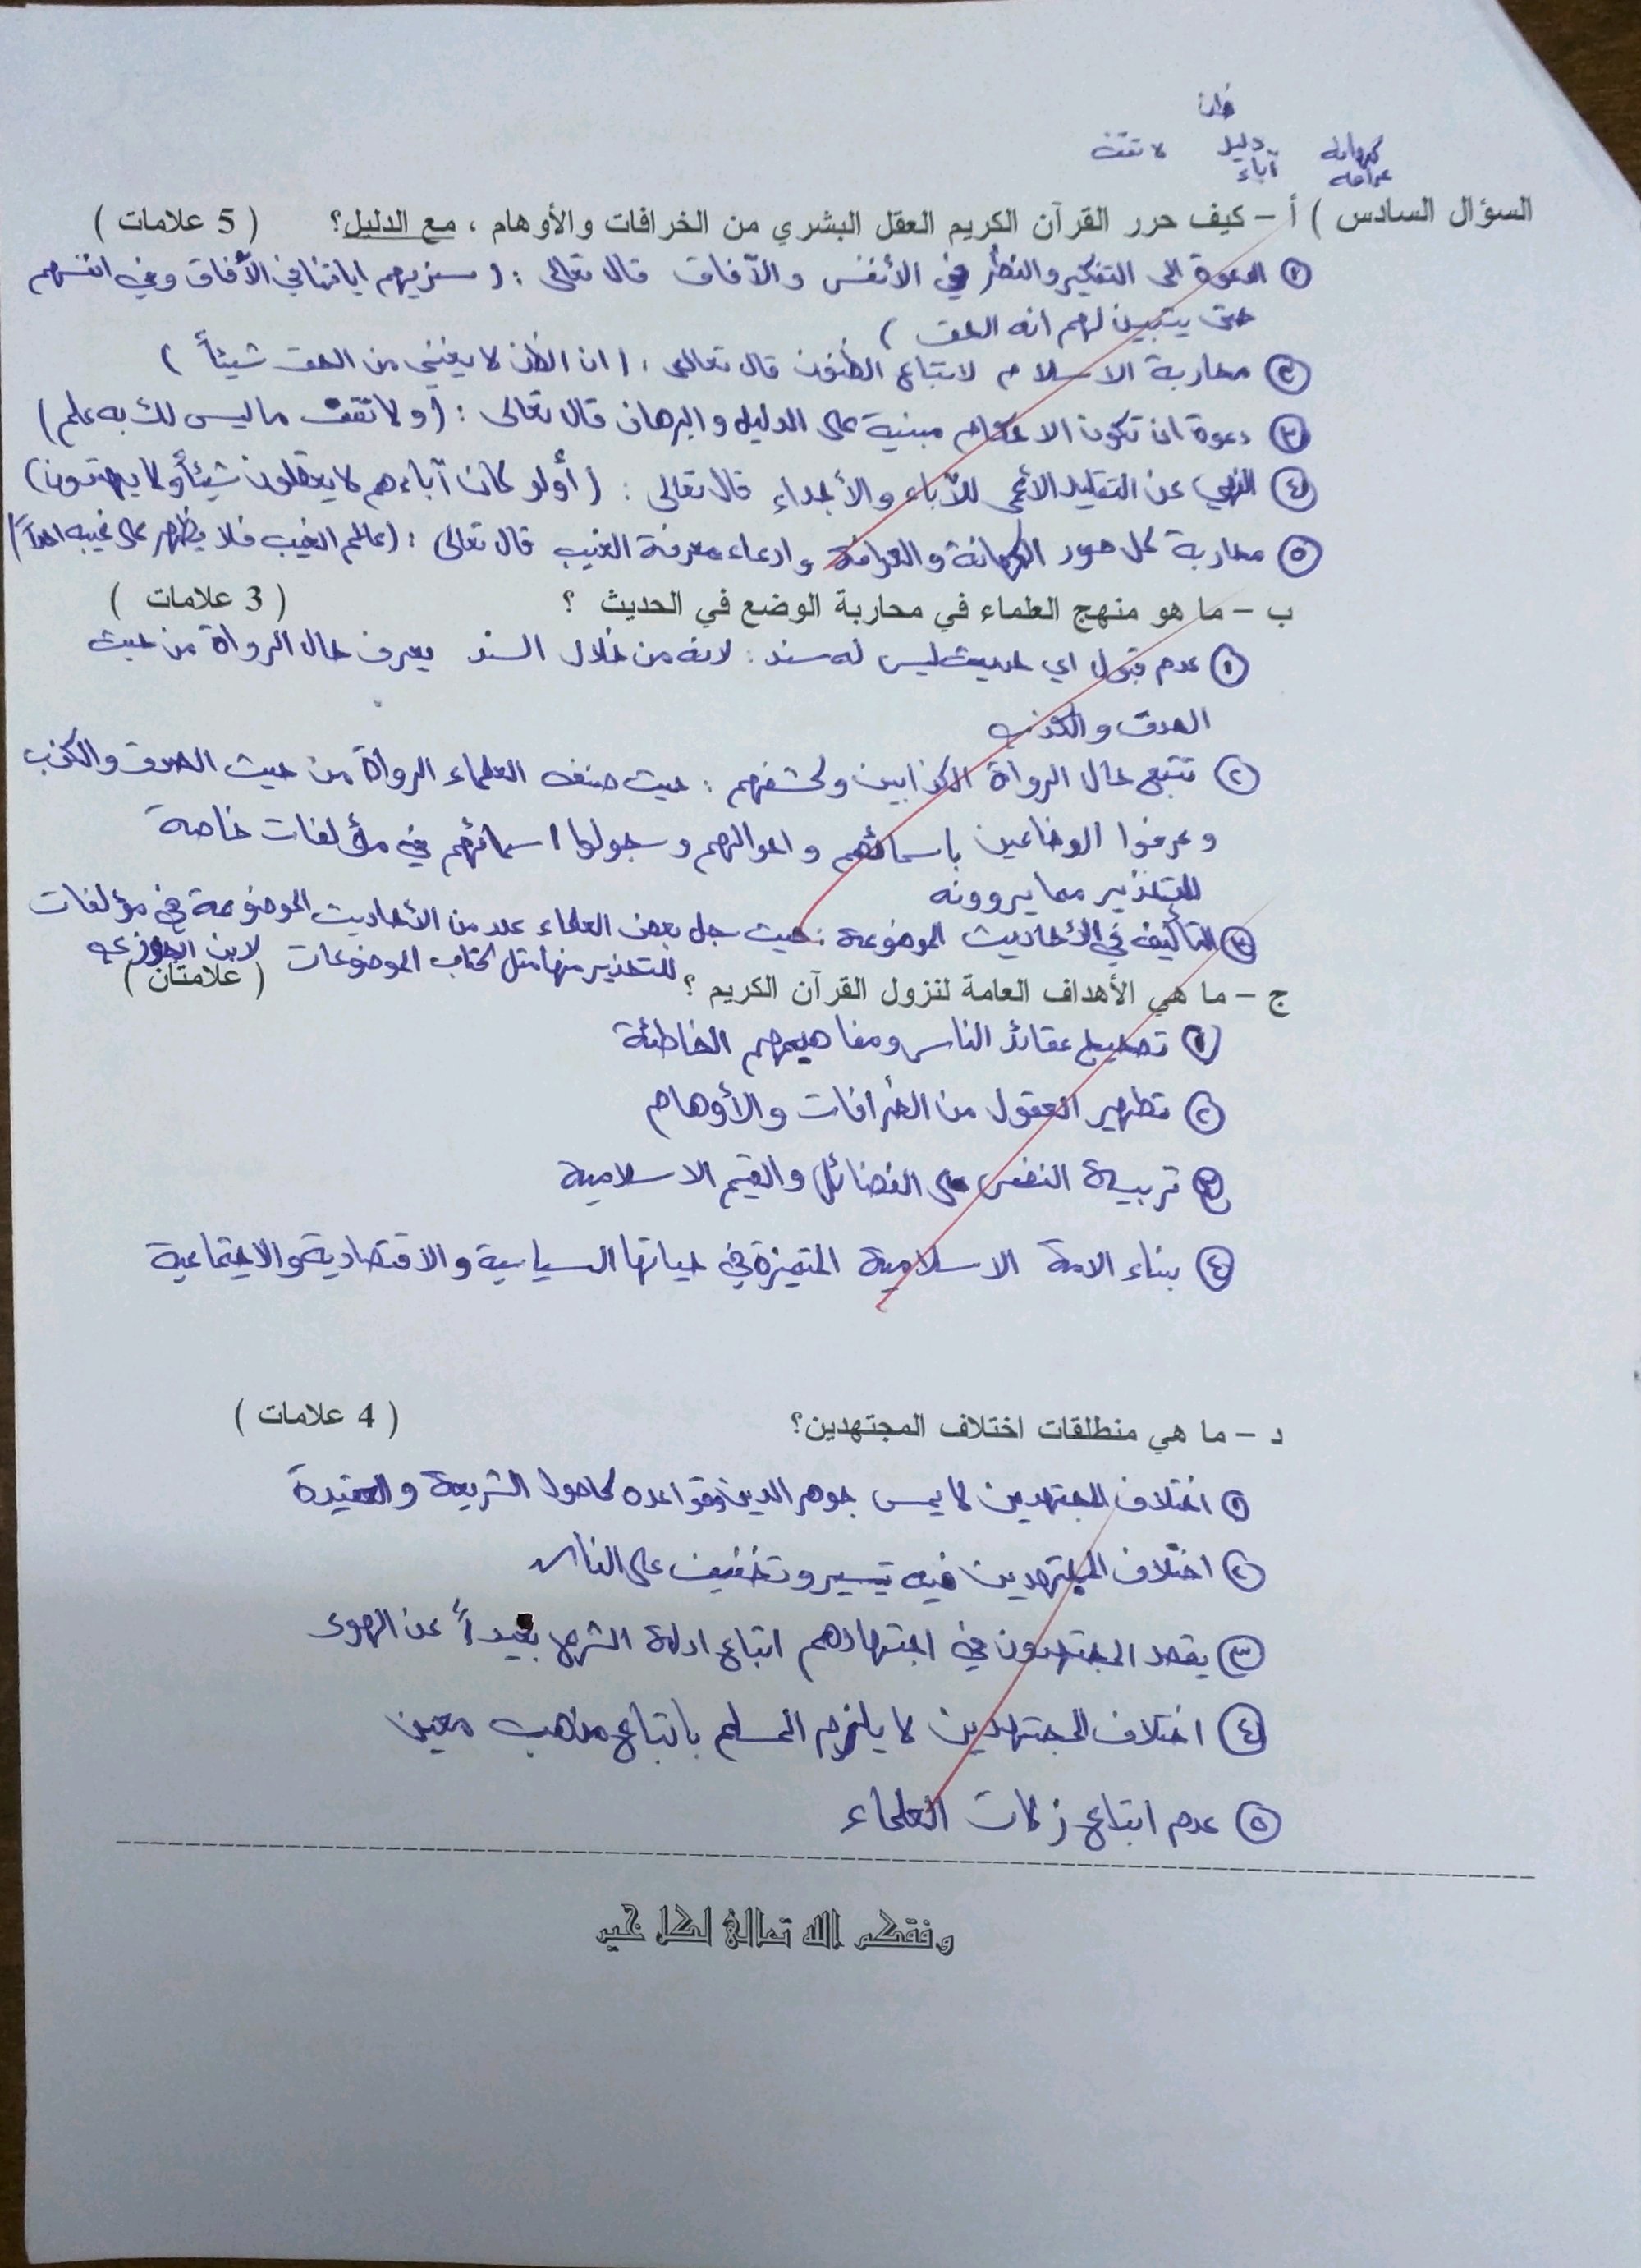 ظن
كهانة دليل لا تقف
عرافة آباء
السؤال السادس ) أ – كيف حرر القرآن الكريم العقل البشري من الخرافات والأوهام ، مع الدليل؟ ( 5 علامات )
① الدعوة الى التفكير والنظر في الأنفس والآفاق قال تعالى : ( سنريهم اياتنا في الآفاق وفي انفسهم
حتى يتبين لهم انه الحق )
② محاربة الاسلام لاتباع الظنون قال تعالى : ( ان الظن لا يغني من الحق شيئاً )
③ دعوة ان تكون الاحكام مبنية على الدليل والبرهان قال تعالى : ( ولا تقف ما ليس لك به علم )
④ النهي عن التقليد الأعمى للآباء والأجداد قال تعالى : ( أولو كان آباءهم لا يعقلون شيئاً ولا يهتدون )
⑤ محاربة كل صور الكهانة والعرافة وادعاء معرفة الغيب قال تعالى : ( عالم الغيب فلا يظهر على غيبه احداً )
ب – ما هو منهج العلماء في محاربة الوضع في الحديث ؟ ( 3 علامات )
① عدم قبول اي حديث ليس له سند : لانه من خلال السند يعرف حال الرواة من حيث
الصدق والكذب
② تتبع حال الرواة الكذابين وكشفهم : حيث صنف العلماء الرواة من حيث الصدق والكذب
وعرفوا الوضاعين باسمائهم واحوالهم وسجولوا اسمائهم في مؤلفات خاصة
للتحذير مما يروونه
③ التأليف في الأحاديث الموضوعة : حيث جل بعض العلماء عدد من الأحاديث الموضوعة في مؤلفات
للتحذير منها مثل كتاب الموضوعات لابن الجوزي
ج – ما هي الأهداف العامة لنزول القرآن الكريم ؟ ( علامتان )
① تصحيح عقائد الناس ومفاهيمهم الخاطئة
② تطهير العقول من الخرافات والأوهام
③ تربية النفس على الفضائل والقيم الاسلامية
④ بناء الامة الاسلامية المتميزة في حياتها السياسية والاقتصادية والاجتماعية
د – ما هي منطلقات اختلاف المجتهدين؟ ( 4 علامات )
① اختلاف المجتهدين لا يمس جوهر الدين وقواعده كاصول الشريعة والعقيدة
② اختلاف المجتهدين فيه تيسير وتخفيف على الناس
③ يقصد المجتهدون في اجتهادهم اتباع ادلة الشرع بعيداً عن الهوى
④ اختلاف المجتهدين لا يلزم المسلم باتباع مذهب معين
⑤ عدم اتباع زلات العلماء
وفقكم الله تعالى لكل خير